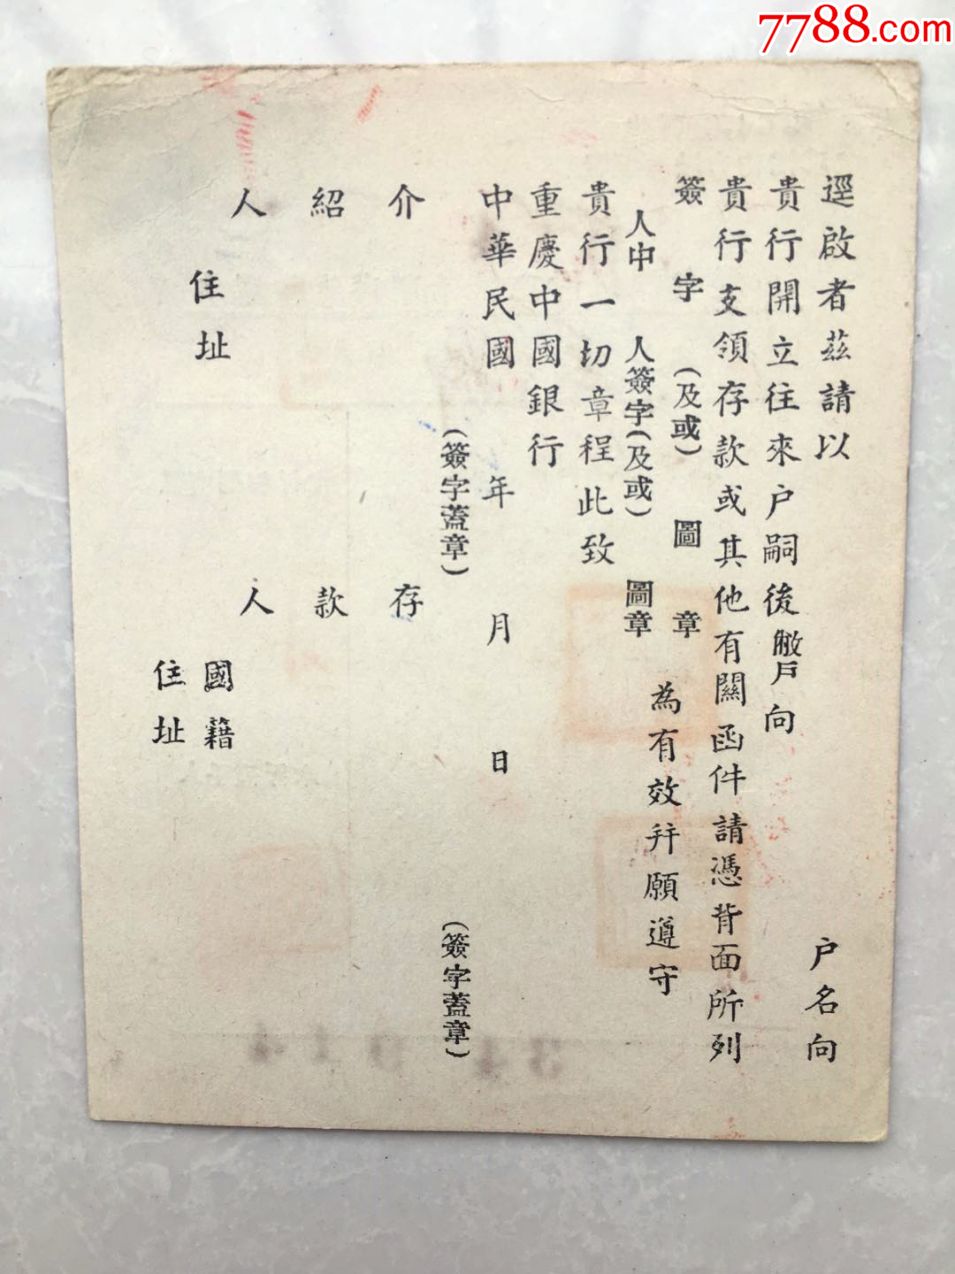 7788.com
逕啟者茲請以 户名向
貴行開立往來户嗣後敝戶向
貴行支領存款或其他有關函件請憑背面所列
簽字(及或)圖章
人中 人簽字(及或)圖章 為有效并願遵守
貴行一切章程此致
重慶中國銀行
中華民國 年 月 日
介紹人 (簽字蓋章)
住址
存款人 (簽字蓋章)
國籍
住址